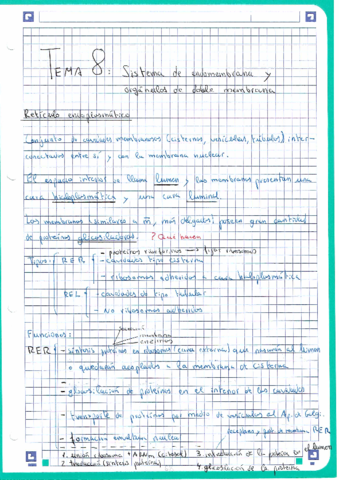 TEMA 8: Sistema de endomembrana y
orgánulos de doble membrana
Retículo endoplasmático
Conjunto de cavidades membranosas (cisternas, vesículas, túbulos) inter-
conectadas entre sí y con la membrana nuclear.
El espacio interno se llama lumen y las membranas presentan una
cara hialoplasmática y una cara luminal.
Las membranas similares a m, más delgadas; poseen gran cantidad
de proteínas glicosiladas. ? Que hacen
- proteínas riboforinas → fijar ribosomas
Tipos: RER - cavidades tipo cisterna
- ribosomas adheridos a cara hialoplasmática
REL - cavidades de tipo tubular
- No ribosomas adheridos
Funciones:
membrana
enzimas
RER - síntesis proteínas en ribosomas (cara externa) que pasarán al lumen
o quedarán acopladas a la membrana de cisterna
- glicosilación de proteínas en el interior de las cavidades
- transporte de proteínas por medio de vesículas al Ap. de Golgi.
- formación envoltura nuclear
RER
1. unión ribosoma + ARNm
3. introducción de la proteína en el lumen
2. traducción (síntesis proteína)
4. glicosilación de la proteína